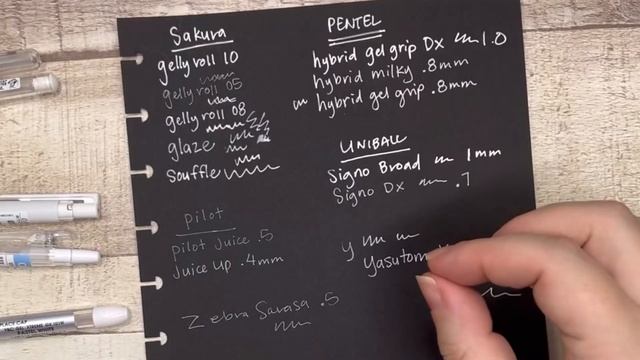 Sakura
gelly roll 10
gelly roll 05
gelly roll 08
glaze
souffle
PENTEL
hybrid gel grip Dx 1.0
hybrid milky .8mm
hybrid gel grip .8mm
UNIBALL
Signo Broad 1mm
Signo Dx .7
pilot
pilot Juice .5
Juice Up .4mm
Zebra Sarasa .5
y
PLACE CAP
PASTEL WHITE